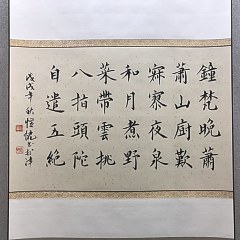 鐘梵晚蕭
蕭山廚歎
寂寥夜泉
和月煮野
菜帶雲挑
八指頭陀
自遣五絕
戊戌年秋